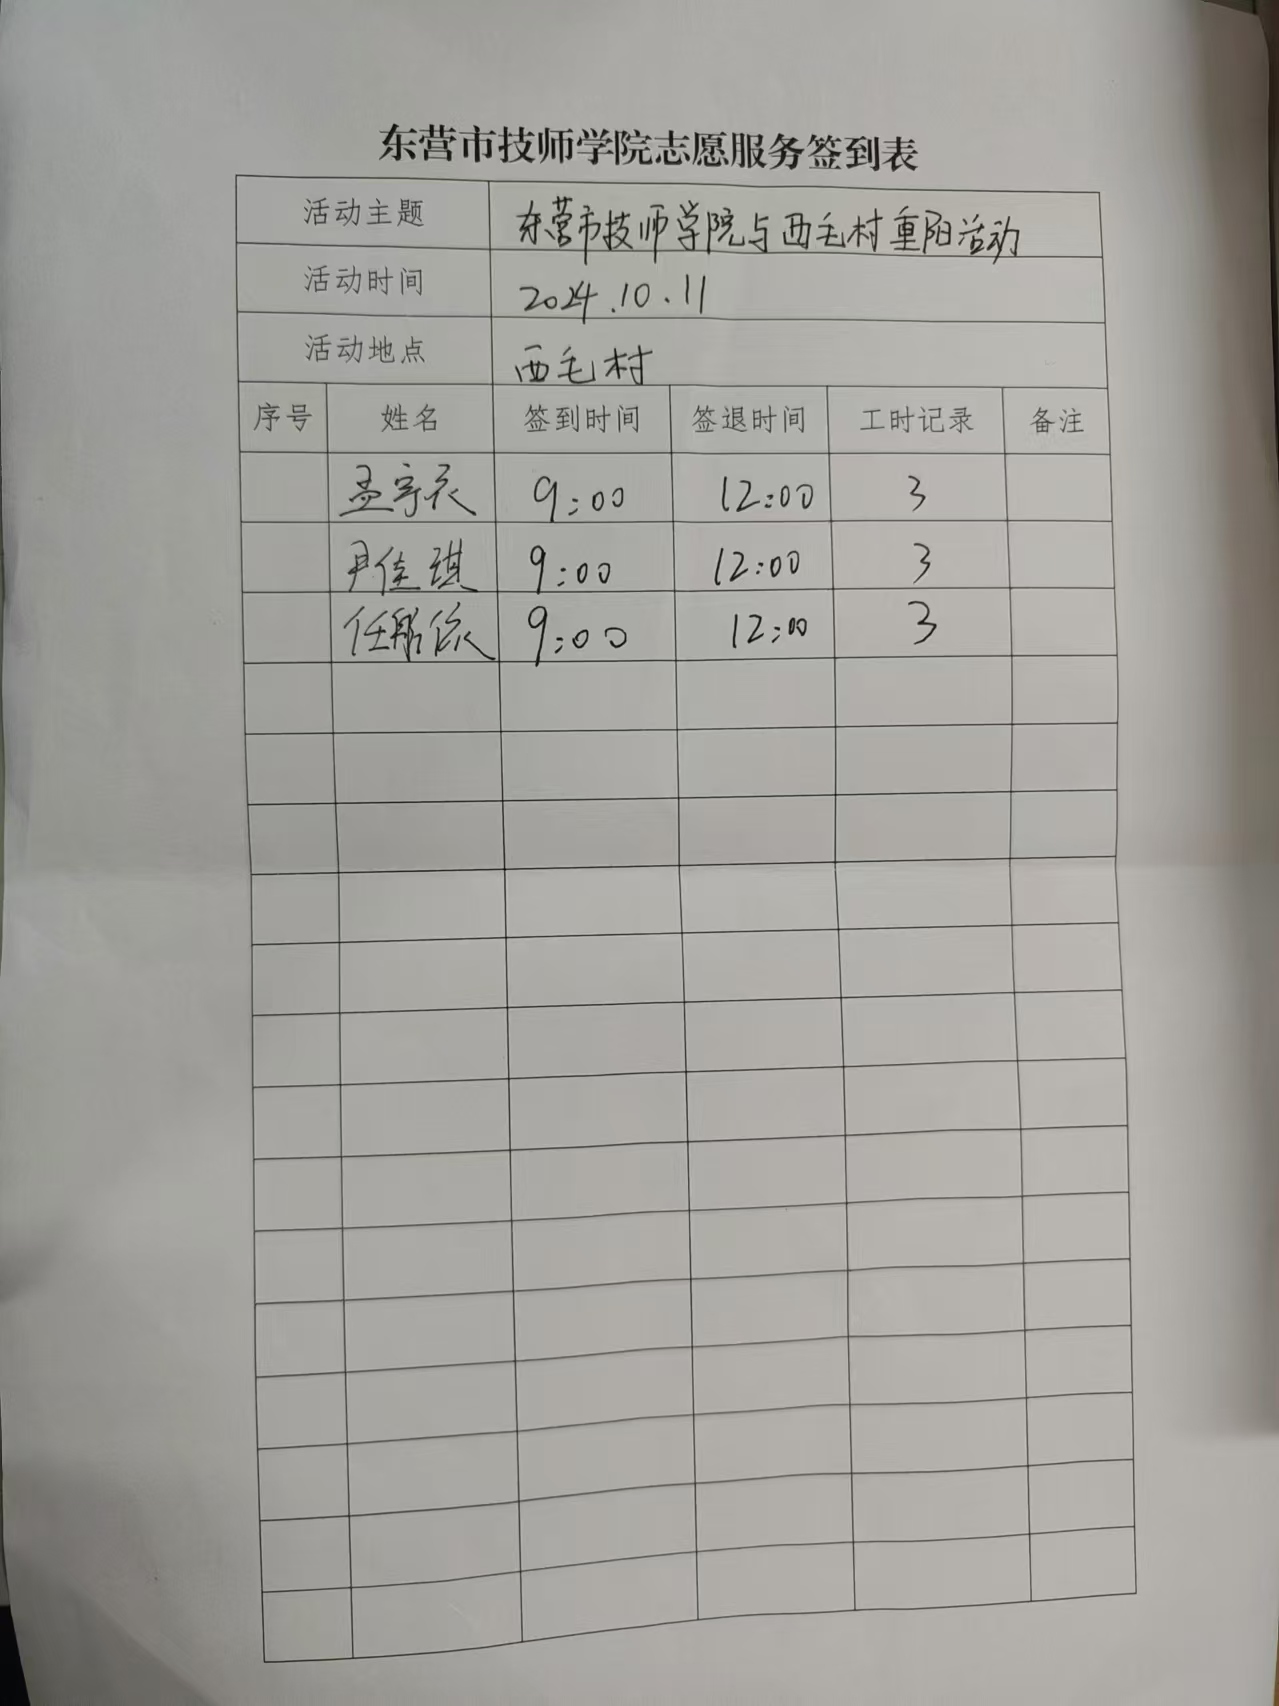 东营市技师学院志愿服务签到表
活动主题 东营市技师学院与西毛村重阳活动
活动时间 2024.10.11
活动地点 西毛村
序号 姓名 签到时间 签退时间 工时记录 备注
孟宇辰 9:00 12:00 3
尹佳琪 9:00 12:00 3
任 9:00 12:00 3